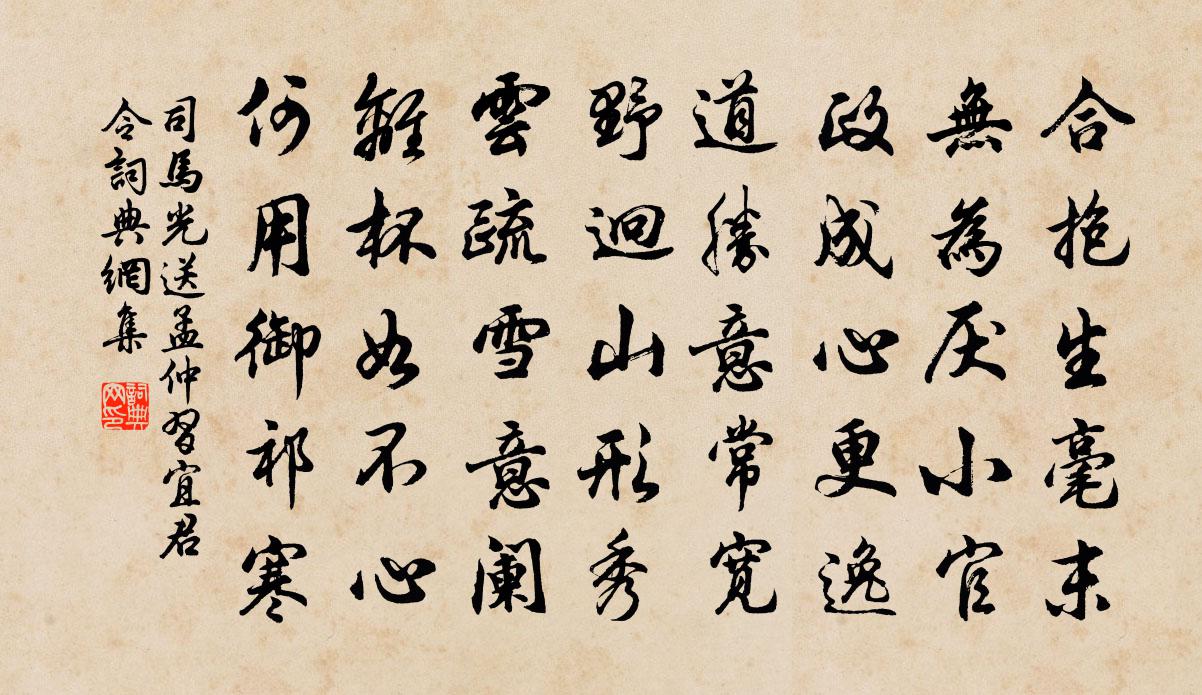 合抱生毫末
無為厌小官
政成心更逸
道勝意常寬
野逈山形秀
雲疏雪意闌
離杯如不心
何用御祁寒
司馬光送孟仲習宜君
令詞典網集
詞典网印